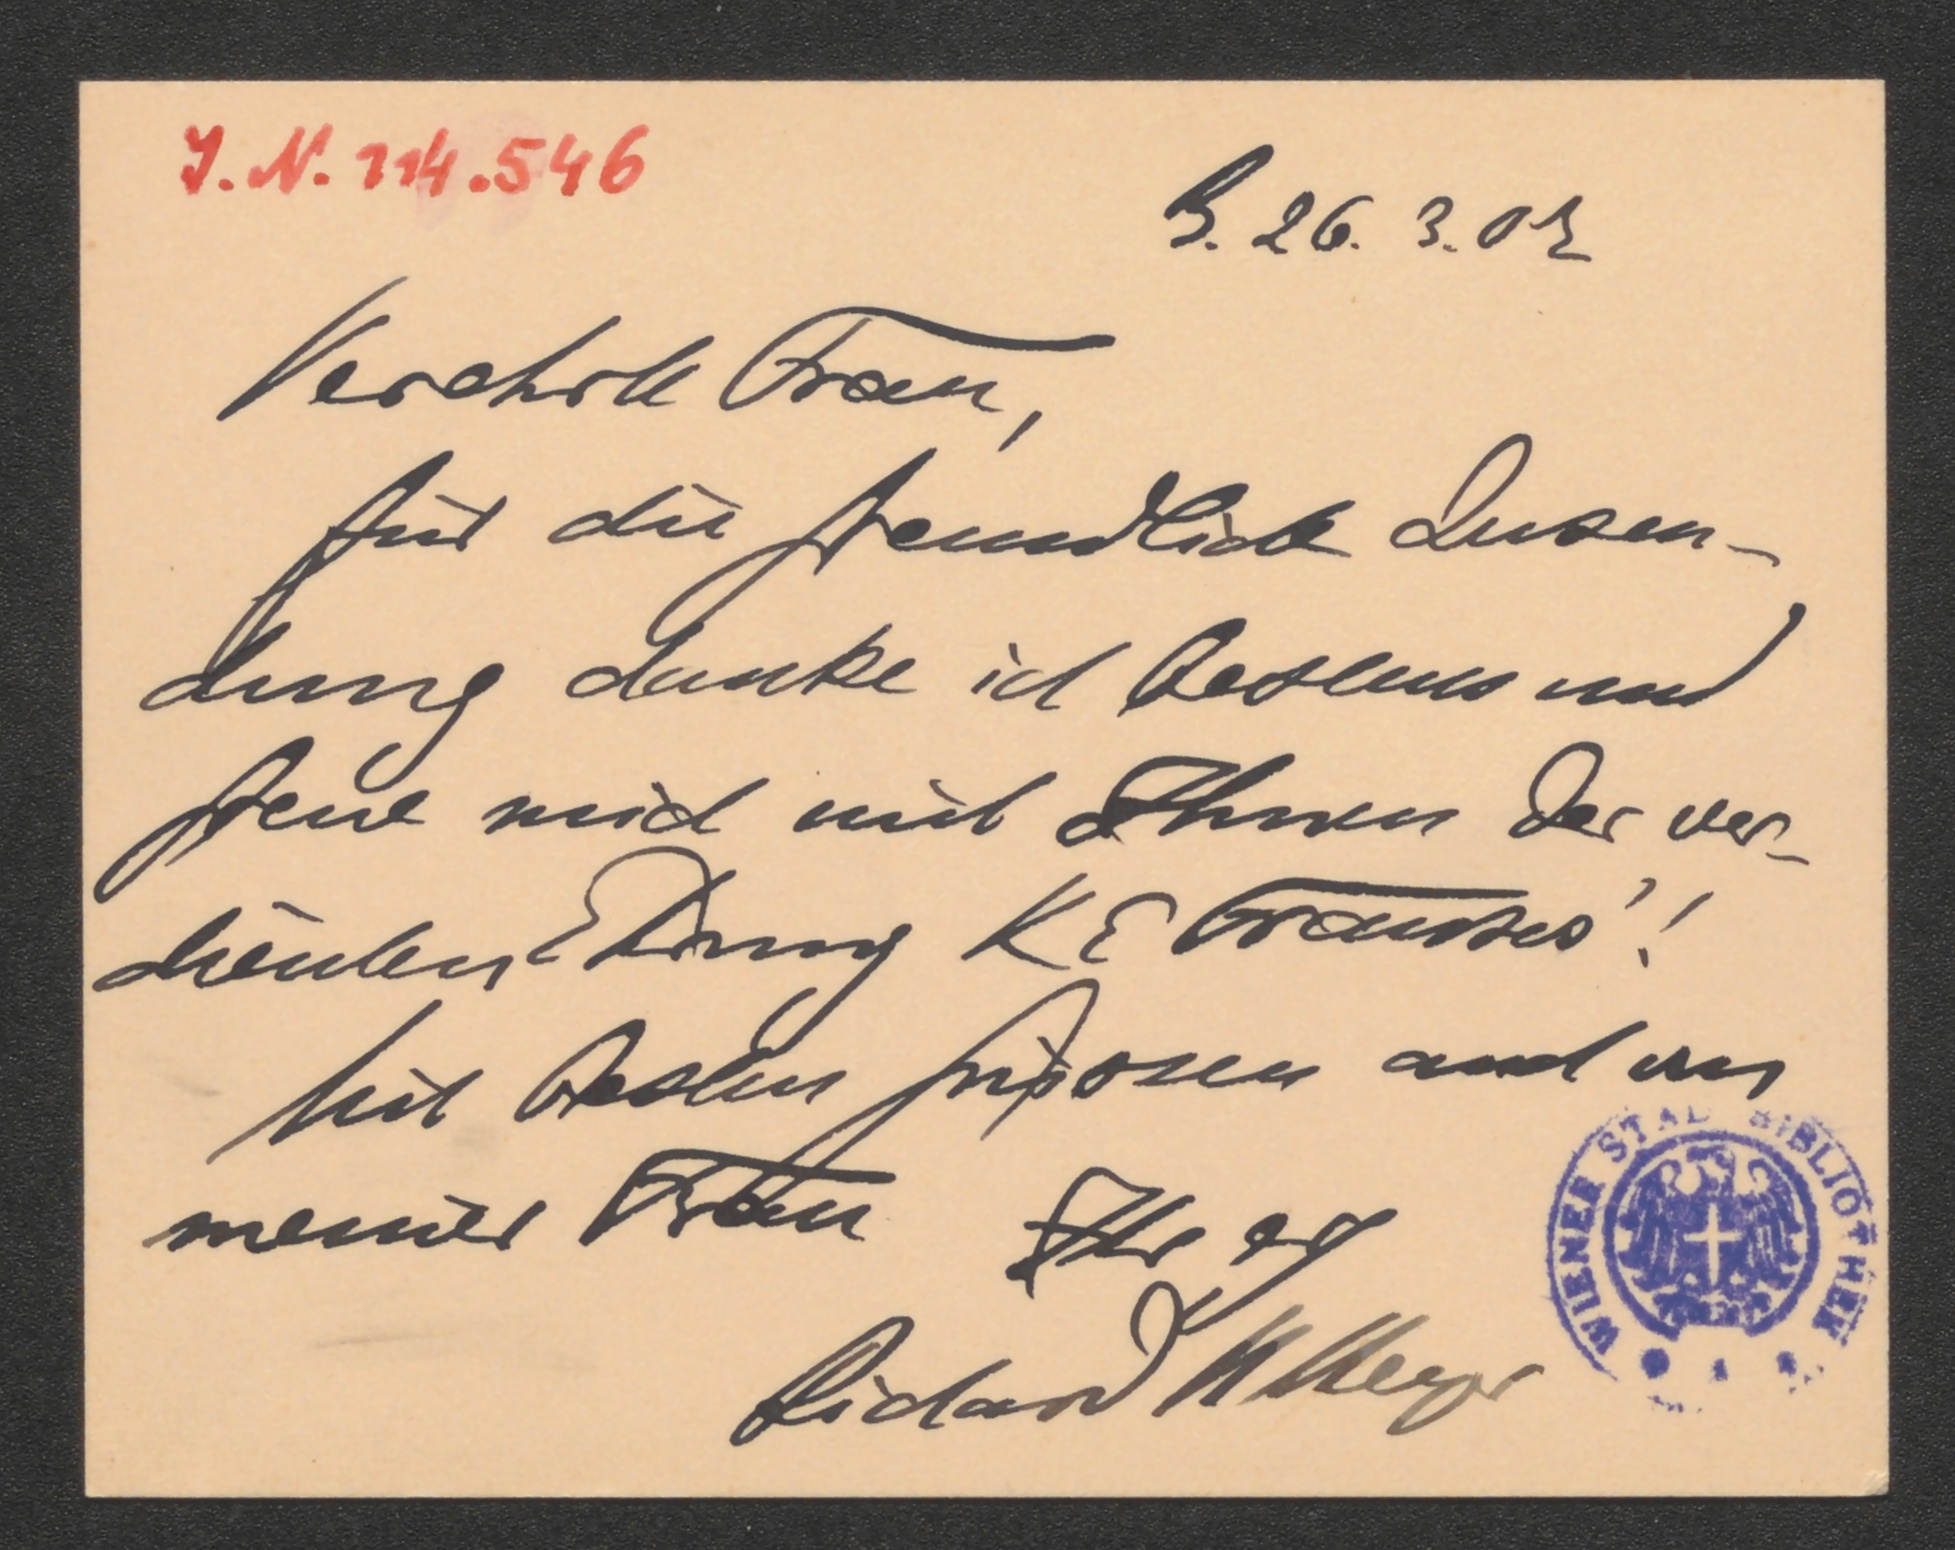 J.N. 114.546
B. 26. 3. 02
Verehrte Frau,
für die freundliche Zusen-
dung danke ich bestens und
freue mich mit Ihnen der ver-
dienten Ehrung K E Franzos'!
Mit besten Grüssen auch von
meiner Frau Ihr erg
Richard M Meyer
WIENER STADTBIBLIOTHEK